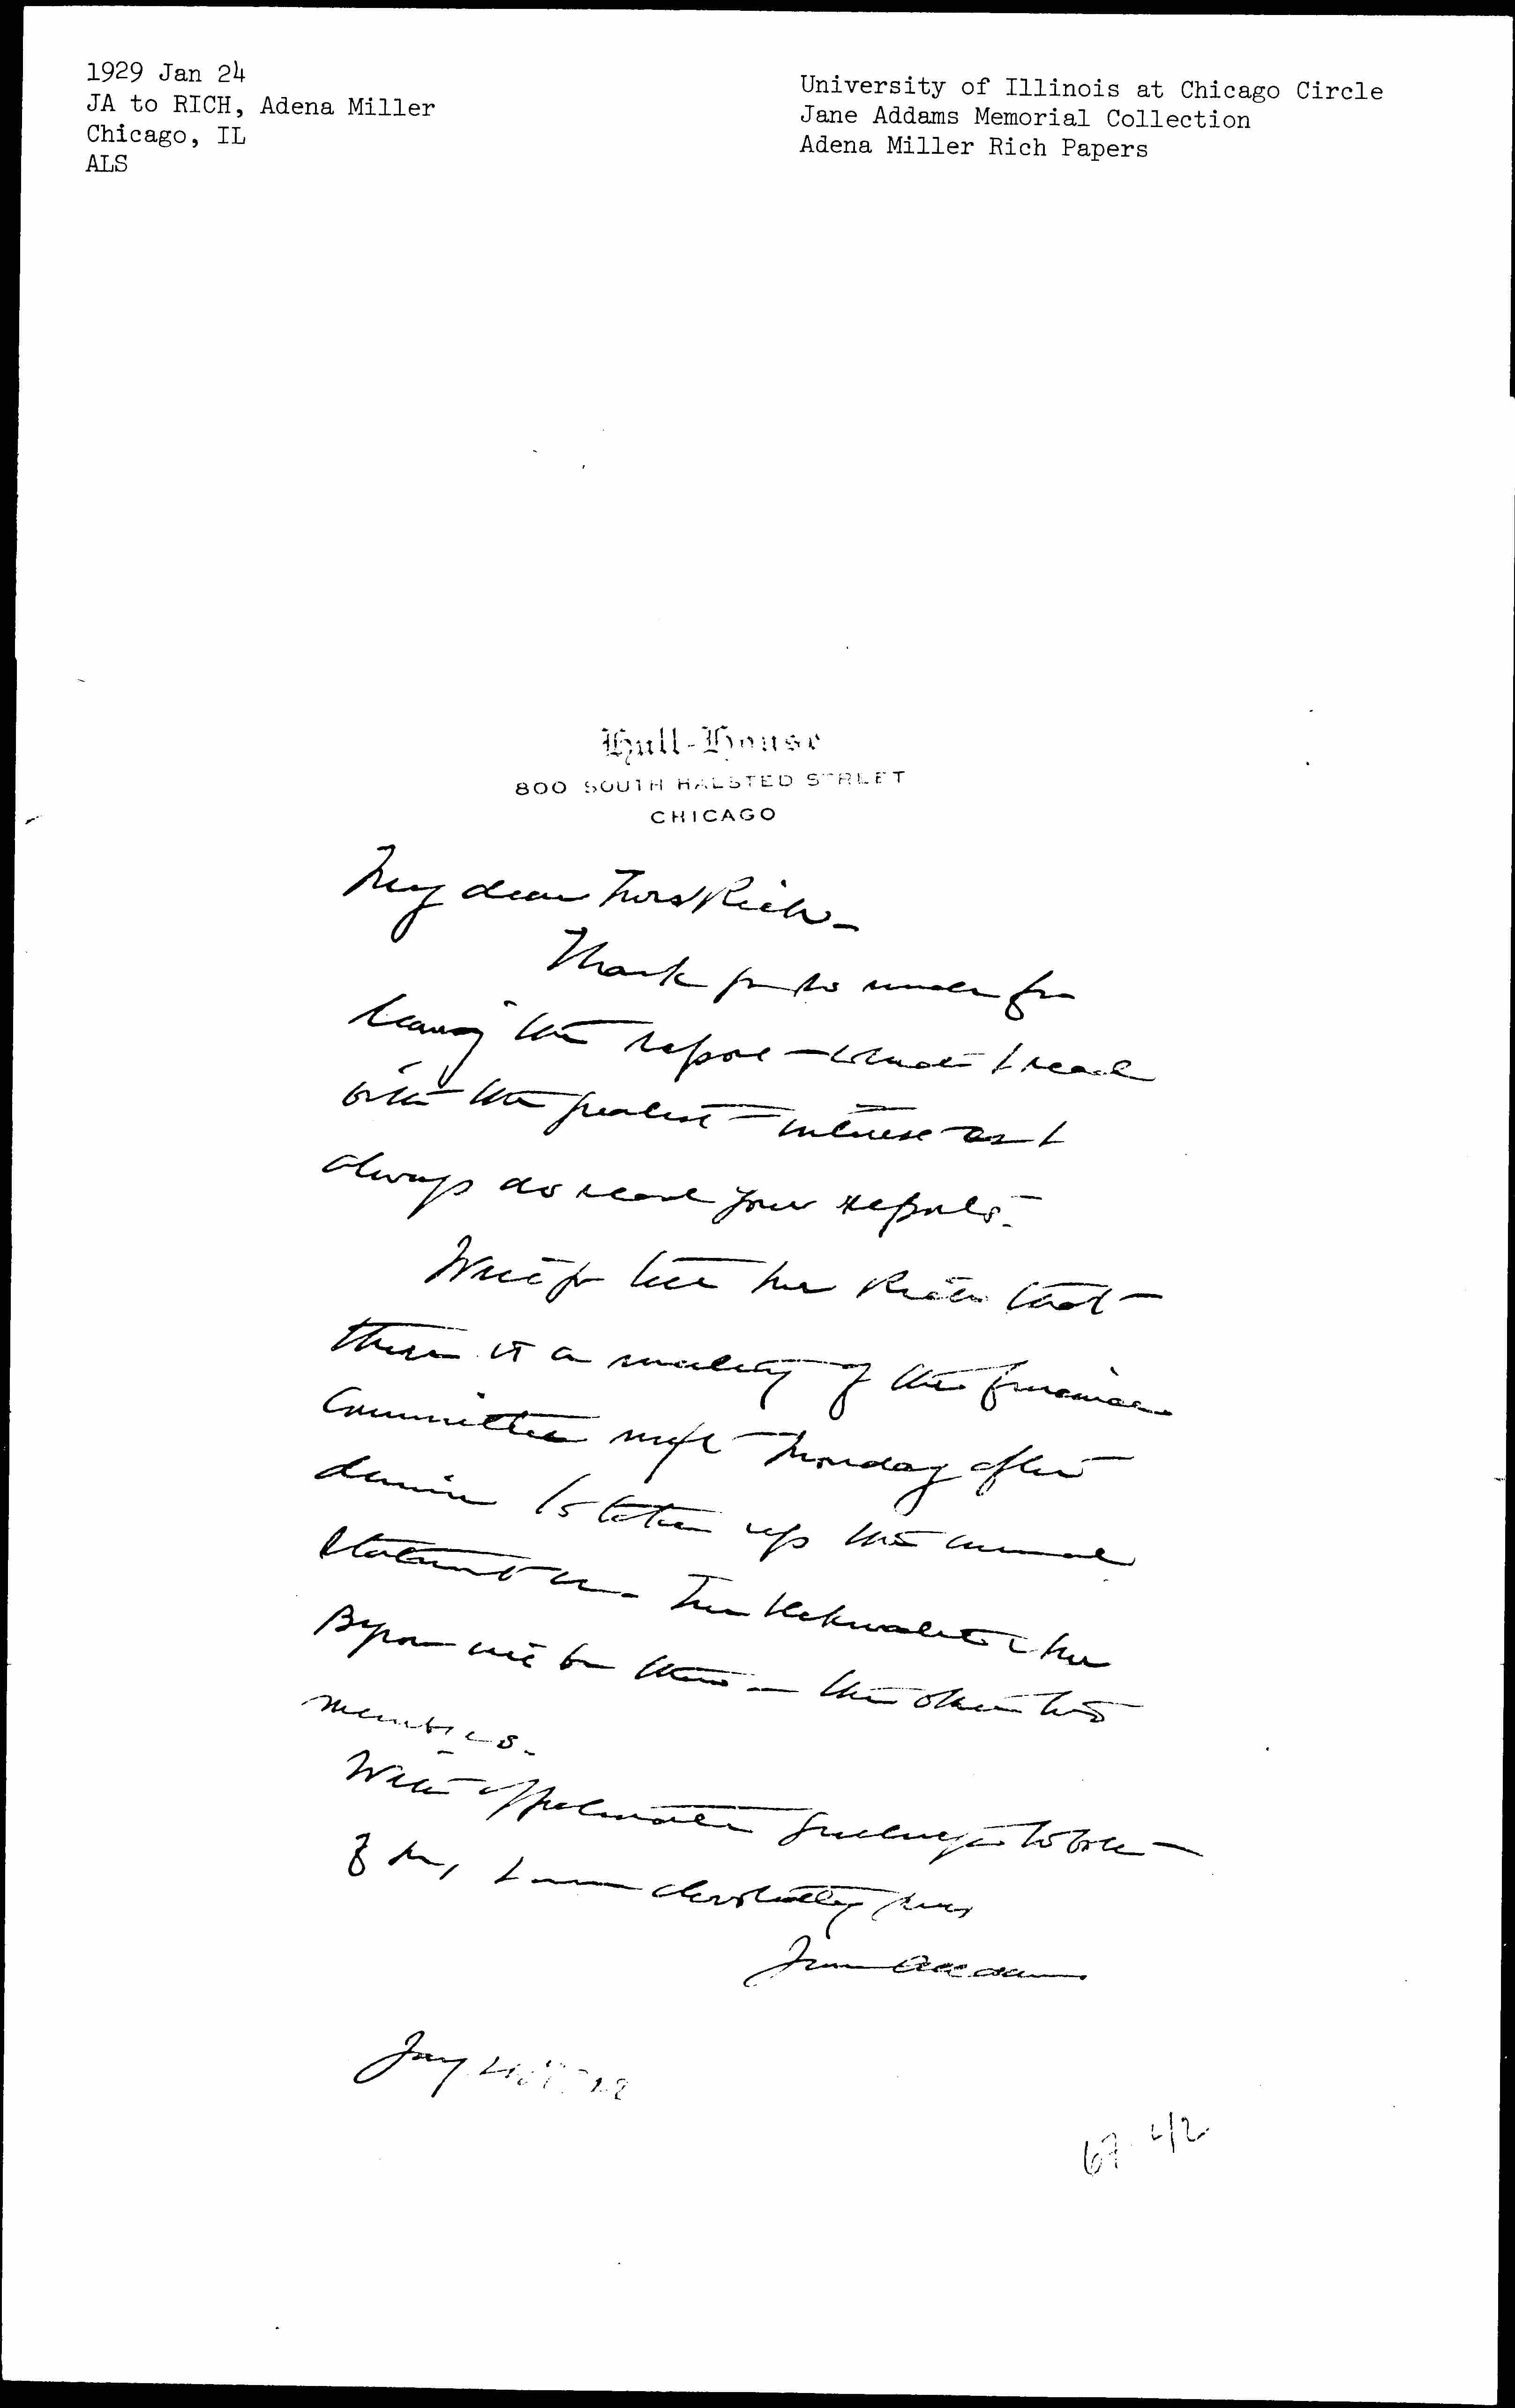 1929 Jan 24
JA to RICH, Adena Miller
Chicago, IL
ALS
University of Illinois at Chicago Circle
Jane Addams Memorial Collection
Adena Miller Rich Papers
Hull-House
800 SOUTH HALSTED STREET
CHICAGO
My dear Mrs Rich -
Thank you so much for
leaving the report - which I read
with the greatest interest as I
always do read your reports.
Will you tell Mr Rich that
there is a meeting of the finance
Committee next Monday after
dinner to take up the annual
statement &c. Mr
Byron will be there - the other two
members.
With affectionate greetings to both
of you, I am devotedly yours
Jane Addams
Jany 24